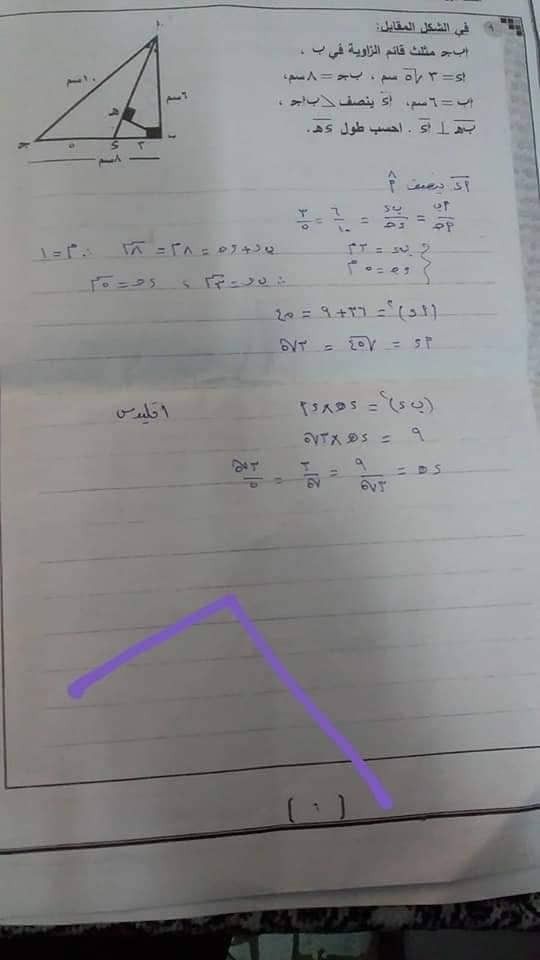 ٩ في الشكل المقابل:
أ ب جـ مثلث قائم الزاوية في ب ،
أ د = ٣ √٥ سم ، ب جـ = ٨ سم،
أ ب = ٦ سم، أ د ينصف ∠ ب أ جـ ،
ب هـ ⊥ أ د . احسب طول د هـ .
أ
١٠ سم
٦ سم
هـ
جـ ٥ د ٣ ب
٨ سم
أد ينصف أ
أب/أحـ = بد/دحـ = ٦/١٠ = ٣/٥
بد = ٣م
دحـ = ٥م
بد + دحـ = ٨م = ٨ ∴ م = ١
∴ بد = ٣ ، دحـ = ٥
(أد)² = ٣٦ + ٩ = ٤٥
أد = √٤٥ = ٣√٥
(بد)² = دهـ × دأ اقليدس
٩ = دهـ × ٣√٥
دهـ = ٩/٣√٥ = ٣/√٥ = ٣√٥/٥